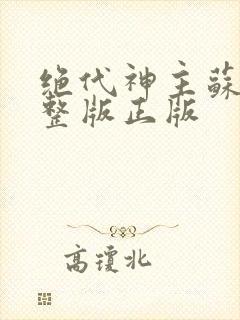 绝代神主蘇
整版正版
高瓊北